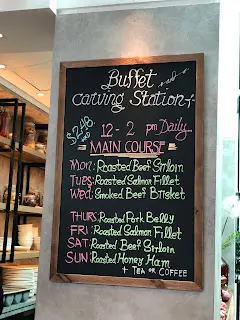 Buffet and
Carving Station
$248
12 - 2 pm Daily
MAIN COURSE
MON: Roasted Beef Sirloin
TUES: Roasted Salmon Fillet
WED: Smoked Beef Brisket
THURS: Roasted Pork Belly
FRI: Roasted Salmon Fillet
SAT: Roasted Beef Sirloin
SUN: Roasted Honey Ham
+ TEA OR COFFEE